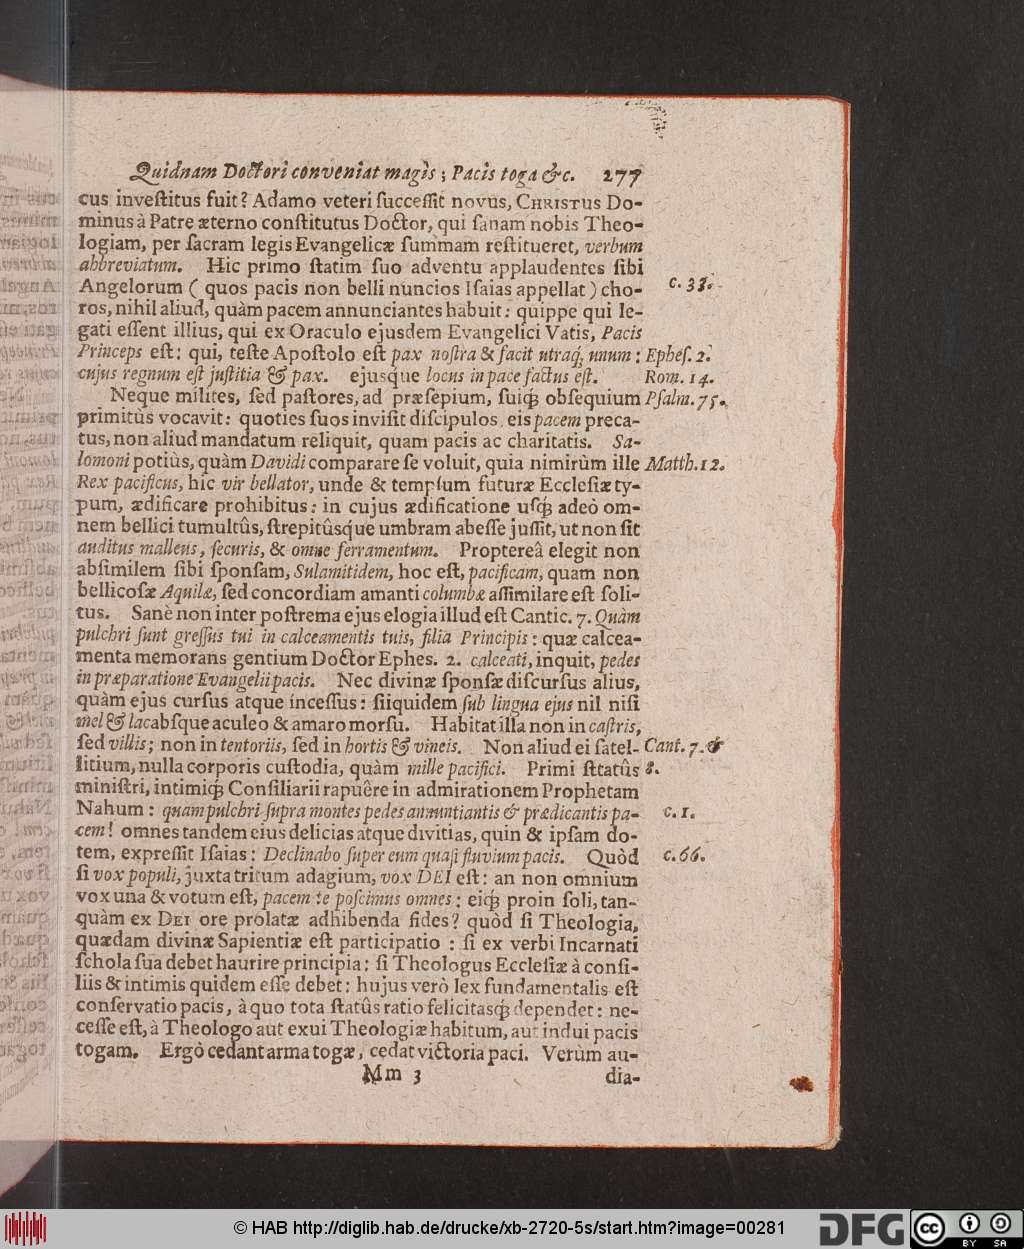 Quidnam Doctori conveniat magis; Pacis toga &c. 277
cus inveſtitus fuit? Adamo veteri ſucceſſit novus, CHRISTUS Do-
minus à Patre æterno conſtitutus Doctor, qui ſanam nobis Theo-
logiam, per ſacram legis Evangelicæ ſummam reſtitueret, verbum
abbreviatum. Hic primo ſtatim ſuo adventu applaudentes ſibi
Angelorum ( quos pacis non belli nuncios Iſaias appellat ) cho- c. 33.
ros, nihil aliud, quàm pacem annunciantes habuit: quippe qui le-
gati eſſent illius, qui ex Oraculo ejusdem Evangelici Vatis, Pacis
Princeps eſt: qui, teſte Apoſtolo eſt pax noſtra & facit utraq́, unum: Epheſ. 2.
cujus regnum eſt juſtitia & pax. ejusque locus in pace factus eſt. Rom. 14.
Neque milites, ſed paſtores, ad præſepium, ſuiq́; obſequium Pſalm. 75.
primitùs vocavit: quoties ſuos inviſit diſcipulos, eis pacem preca-
tus, non aliud mandatum reliquit, quam pacis ac charitatis. Sa-
lomoni potiùs, quàm Davidi comparare ſe voluit, quia nimirùm ille Matth. 12.
Rex pacificus, hic vir bellator, unde & templum futuræ Eccleſiæ ty-
pum, ædificare prohibitus: in cujus ædificatione uſq́; adeò om-
nem bellici tumultûs, ſtrepitûsque umbram abeſſe juſſit, ut non ſit
auditus malleus, ſecuris, & omne ferramentum. Proptereâ elegit non
abſimilem ſibi ſponſam, Sulamitidem, hoc eſt, pacificam, quam non
bellicoſæ Aquilæ, ſed concordiam amanti columbæ aſſimilare eſt ſoli-
tus. Sanè non inter poſtrema ejus elogia illud eſt Cantic. 7. Quàm
pulchri ſunt greſſus tui in calceamentis tuis, filia Principis: quæ calcea-
menta memorans gentium Doctor Ephes. 2. calceati, inquit, pedes
in præparatione Evangelii pacis. Nec divinæ ſponſæ diſcurſus alius,
quàm ejus curſus atque inceſſus: ſiiquidem ſub lingua ejus nil niſi
mel & lac absque aculeo & amaro morſu. Habitat illa non in caſtris,
ſed villis; non in tentoriis, ſed in hortis & vineis. Non aliud ei ſatel- Cant. 7. &
litium, nulla corporis cuſtodia, quàm mille pacifici. Primi ſttatûs 8.
miniſtri, intimiq́; Conſiliarii rapuêre in admirationem Prophetam
Nahum: quam pulchri ſupra montes pedes annuntiantis & prædicantis pa- c. 1.
cem! omnes tandem eius delicias atque divitias, quin & ipſam do-
tem, expreſſit Iſaias: Declinabo ſuper eum quaſi fluvium pacis. Quòd c. 66.
ſi vox populi, juxta tritum adagium, vox DEI eſt: an non omnium
vox una & votum eſt, pacem te poſcimus omnes: eiq́; proin ſoli, tan-
quàm ex DEI ore prolatæ adhibenda fides? quòd ſi Theologia,
quædam divinæ Sapientiæ eſt participatio : ſi ex verbi Incarnati
ſchola ſua debet haurire principia: ſi Theologus Eccleſiæ à conſi-
liis & intimis quidem eſſe debet: hujus verò lex fundamentalis eſt
conſervatio pacis, à quo tota ſtatûs ratio felicitasq́; dependet: ne-
ceſſe eſt, à Theologo aut exui Theologiæ habitum, aut indui pacis
togam. Ergò cedant arma togæ, cedat victoria paci. Verùm au-
Mm 3 dia-
© HAB http://diglib.hab.de/drucke/xb-2720-5s/start.htm?image=00281
DFG cc BY SA